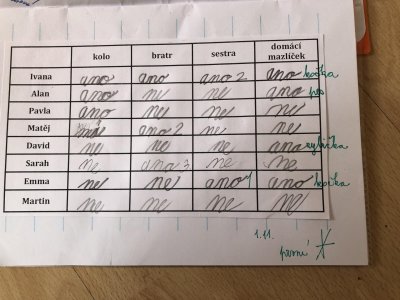 kolo bratr sestra domácí mazlíček
Ivana ano ano ano 2 ano kočka
Alan ano ne ne ano pes
Pavla ano ne ne ne
Matěj ano 2 ne ne
David ne ne ne ano rybička
Sarah ne ano 3 ne ne
Emma ne ne ano 1 ano kočka
Martin ne ne ne ne
1.11.
první